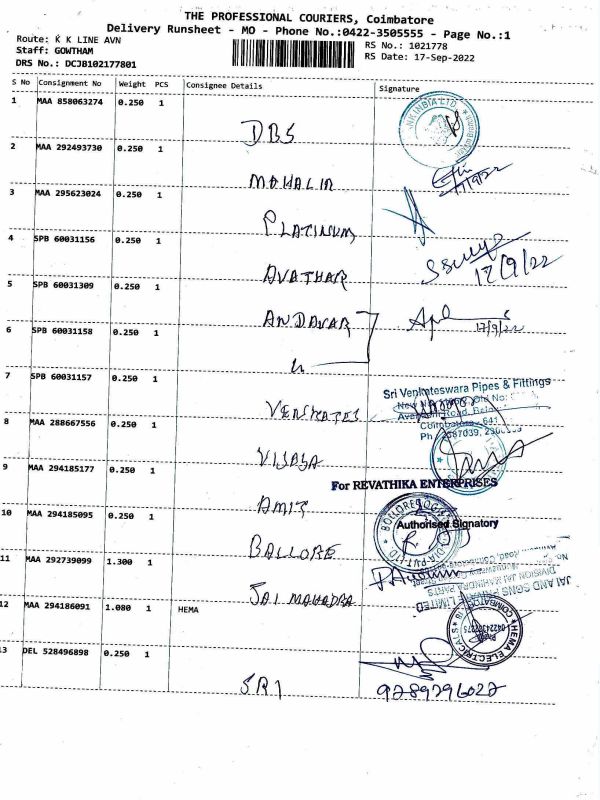 THE PROFESSIONAL COURIERS, Coimbatore
Delivery Runsheet - MO - Phone No.:0422-3505555 - Page No.:1
Route: K K LINE AVN
RS No.: 1021778
Staff: GOWTHAM
RS Date: 17-Sep-2022
DRS No.: DCJB102177801
S No Consignment No Weight PCS Consignee Details Signature
1 MAA 858063274 0.250 1
DBS
2 MAA 292493730 0.250 1
MAHALIR
17/9/22
3 MAA 295623024 0.250 1
PLATINUM
4 SPB 60031156 0.250 1
AVATHAR
17/9/22
5 SPB 60031309 0.250 1
ANDAVAR
17/9/22
6 SPB 60031158 0.250 1
7 SPB 60031157 0.250 1
VENKATES
Sri Venkateswara Pipes & Fittings
Coimbatore - 641
8 MAA 288667556 0.250 1
VIJAYA
9 MAA 294185177 0.250 1
AMIT
For REVATHIKA ENTERPRISES
Authorised Signatory
10 MAA 294185095 0.250 1
BALLORE
11 MAA 292739099 1.300 1
JAI MAHADRA
JAI AND SONS PRIVATE LIMITED
DIVISION JAI MAHINDRA PARTS
12 MAA 294186091 1.080 1 HEMA
HEMA ELECTRICALS
COIMBATORE
13 DEL 528496898 0.250 1
SRI
9789796022